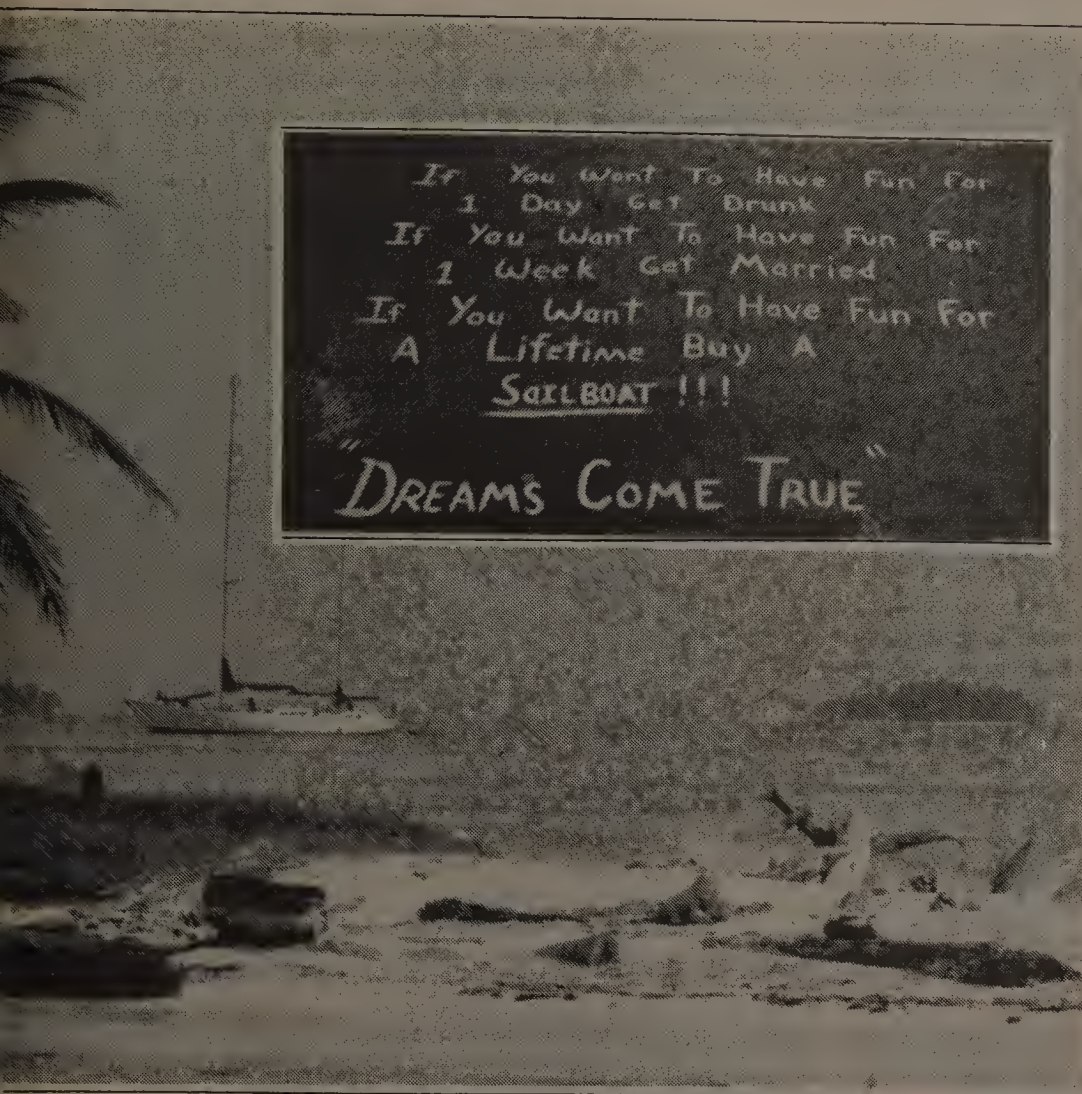 If You Want To Have Fun For
1 Day Get Drunk
If You Want To Have Fun For
1 Week Get Married
If You Want To Have Fun For
A Lifetime Buy A
SaILBOAT !!!
"DREAMS COME TRUE"